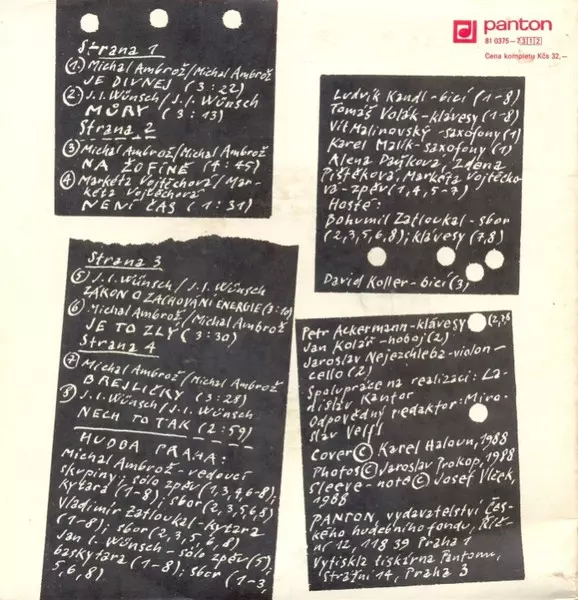 Strana 1
① Michal Ambrož/Michal Ambrož
JE DIVNEJ (3:22)
② J.I. Wünsch/J.I. Wünsch
MŮRY (3:13)
Strana 2
③ Michal Ambrož/Michal Ambrož
NA ŽOFÍNĚ (4:45)
④ Markéta Vojtěchová/Mar-
kéta Vojtěchová
NENÍ ČAS (1:31)
Strana 3
⑤ J.I. Wünsch/J.I. Wünsch
ZÁKON O ZACHOVÁNÍ ENERGIE (3:10)
⑥ Michal Ambrož/Michal Ambrož
JE TO ZLÝ (3:30)
Strana 4
⑦ Michal Ambrož/Michal Ambrož
BREJLIČKY (3:28)
⑧ J.I. Wünsch/J.I. Wünsch
NECH TO TAK (2:59)
HUDBA PRAHA:
Michal Ambrož - vedoucí
skupiny; sólo zpěv (1,3,4,6-8);
kytara (1-8); sbor (2,3,5,6,8)
Vladimír Zatloukal - kytara
(1-8); sbor (2,3,5,6,8)
Jan I. Wünsch - sólo zpěv (5);
baskytara (1-8); sbor (1-3,
5,6,8)
panton
81 0375-7311 2
Cena kompletu Kčs 32,—
Ludvík Kandl - bicí (1-8)
Tomáš Volák - klávesy (1-8)
Vít Malinovský - saxofony (1)
Karel Malík - saxofony (1)
Alena Daňková, Zdena
Pištěková, Markéta Vojtěcho-
vá - zpěv (1,4,5-7)
Hosté:
Bohumil Zatloukal - sbor
(2,3,5,6,8); klávesy (7,8)
David Koller - bicí (3)
Petr Ackermann - klávesy (2,7,8)
Jan Kolář - hoboj (2)
Jaroslav Nejezchleba - violon-
cello (2)
Spolupráce na realizaci: La-
dislav Kantor
Odpovědný redaktor: Miro-
slav
Cover © Karel Haloun, 1988
Photos © Jaroslav Prokop, 1988
Sleeve-note © Josef Vlček,
1988
PANTON, vydavatelství Čes-
kého hudebního fondu, Říč-
ní 12, 118 39 Praha 1
Vytiskla tiskárna Pantonu,
Strážní 14, Praha 3